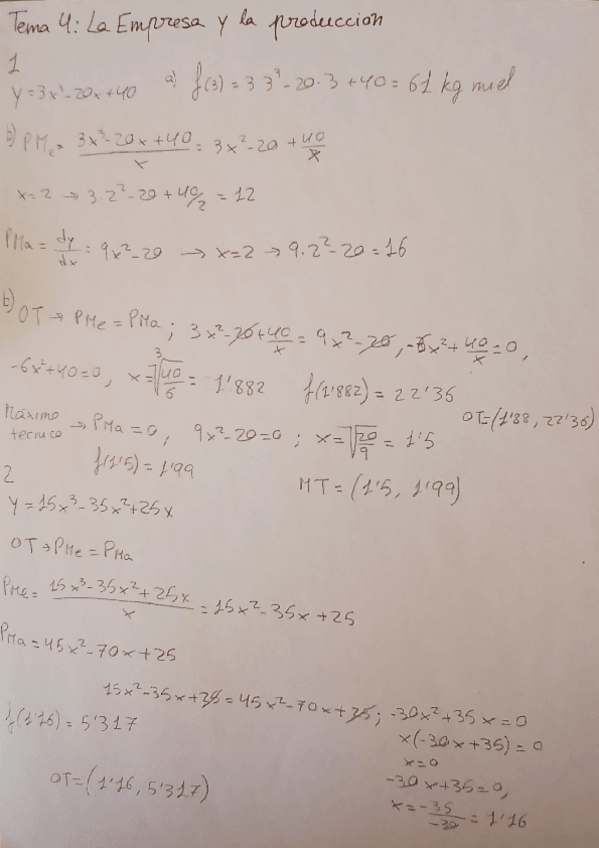 Tema 4: La Empresa y la produccion
1
y=3x³-20x+40 a) f(3) = 3 3³ - 20·3 + 40 = 61 kg miel
PMe = (3x³-20x+40)/x = 3x² - 20 + 40/x
x=2 → 3·2² - 20 + 40/2 = 12
PMa = dy/dx = 9x² - 20 → x=2 → 9·2² - 20 = 16
b) OT → PMe = PMa ; 3x² - 20 + 40/x = 9x² - 20, -6x² + 40/x = 0,
-6x²+40=0, x = ³√(40/6) = 1'882 f(1'882) = 22'36
OT=(1'88, 22'36)
Máximo tecnico → PMa = 0, 9x²-20=0 ; x = √(20/9) = 1'5
f(1'5) = 1'99 MT = (1'5, 1'99)
2
y = 15x³ - 35x² + 25x
OT → PMe = PMa
PMe = (15x³ - 35x² + 25x)/x = 15x² - 35x + 25
PMa = 45x² - 70x + 25
15x² - 35x + 25 = 45x² - 70x + 25 ; -30x² + 35x = 0
f(1'16) = 5'317 x(-30x + 35) = 0
x=0
OT = (1'16, 5'317) -30x+35=0,
x = -35/-30 = 1'16